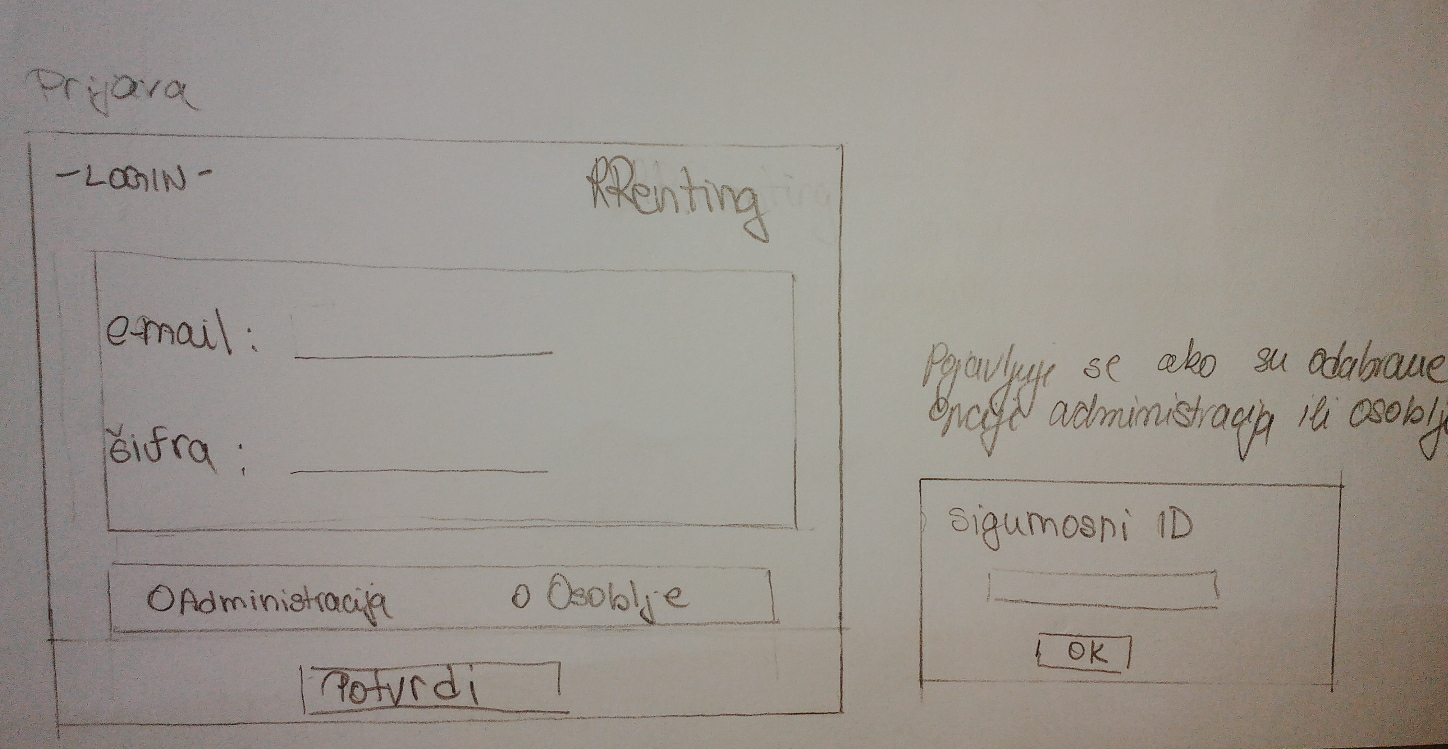 Prijava
-LOGIN-
RRenting
e-mail:
šifra:
O Administracija
O Osoblje
Potvrdi
Pojavljuje se ako su odabrane
opcije administracija ili osoblje
Sigurnosni ID
OK